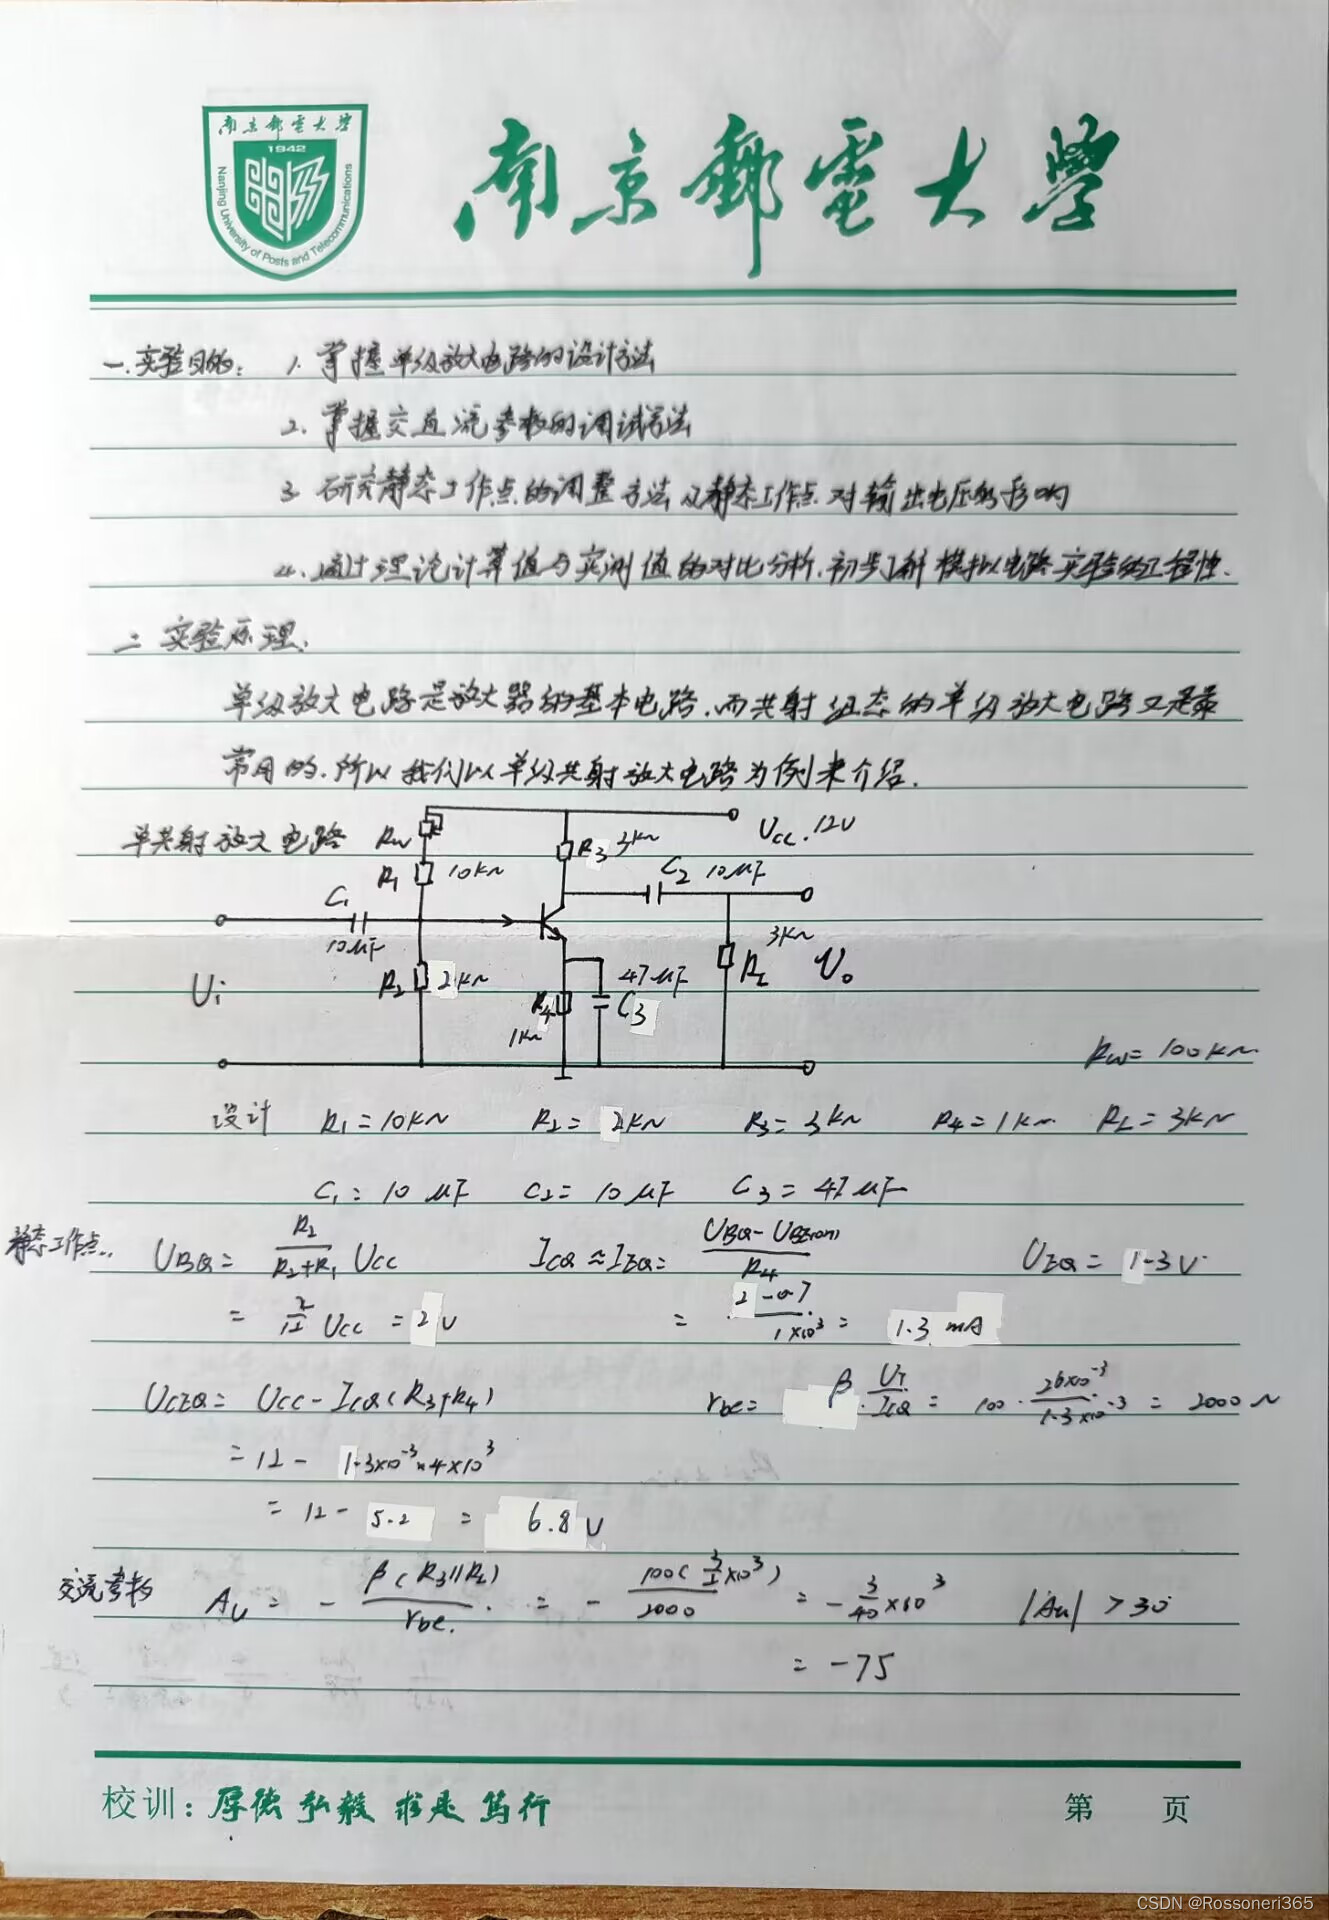 南京邮电大学
1942
Nanjing University of Posts and Telecommunications
南京郵電大學
一.实验目的: 1. 掌握单级放大电路的设计方法
2. 掌握交直流参数的调试方法
3. 研究静态工作点的调整方法及静态工作点对输出电压的影响
4. 通过理论计算值与实测值的对比分析.初步了解模拟电路实验的工程性.
二 实验原理.
单级放大电路是放大器的基本电路.而共射组态的单级放大电路又是最
常用的.所以我们以单级共射放大电路为例来介绍.
单共射放大电路
Rw
R1 10KΩ
R3 3KΩ
UCC.12V
C2 10μF
C1
10μF
Ui
R2 2KΩ
R4
1KΩ
47μF
C3
3KΩ
RL
Uo
Rw=100KΩ
设计 R1=10KΩ R2=2KΩ R3=3KΩ R4=1KΩ RL=3KΩ
C1=10μF C2=10μF C3=47μF
静态工作点. UBQ= R2/(R2+R1) UCC ICQ≈IEQ= (UBQ-UBE(on))/R4 UEQ=1.3V
= 2/12 UCC =2V = (2-0.7)/(1×10³) = 1.3mA
UCEQ= UCC-ICQ(R3+R4) rbe= β·UT/ICQ = 100·(26×10⁻³)/(1.3×10⁻³) = 2000Ω
=12- 1.3×10⁻³×4×10³
= 12- 5.2 = 6.8V
交流参数 Au = - β(R3//RL)/rbe. = - 100(3/2×10³)/2000 = - 3/40×10³ |Au|>30
= -75
校训: 厚德 弘毅 求是 笃行
第 页
CSDN @Rossoneri365